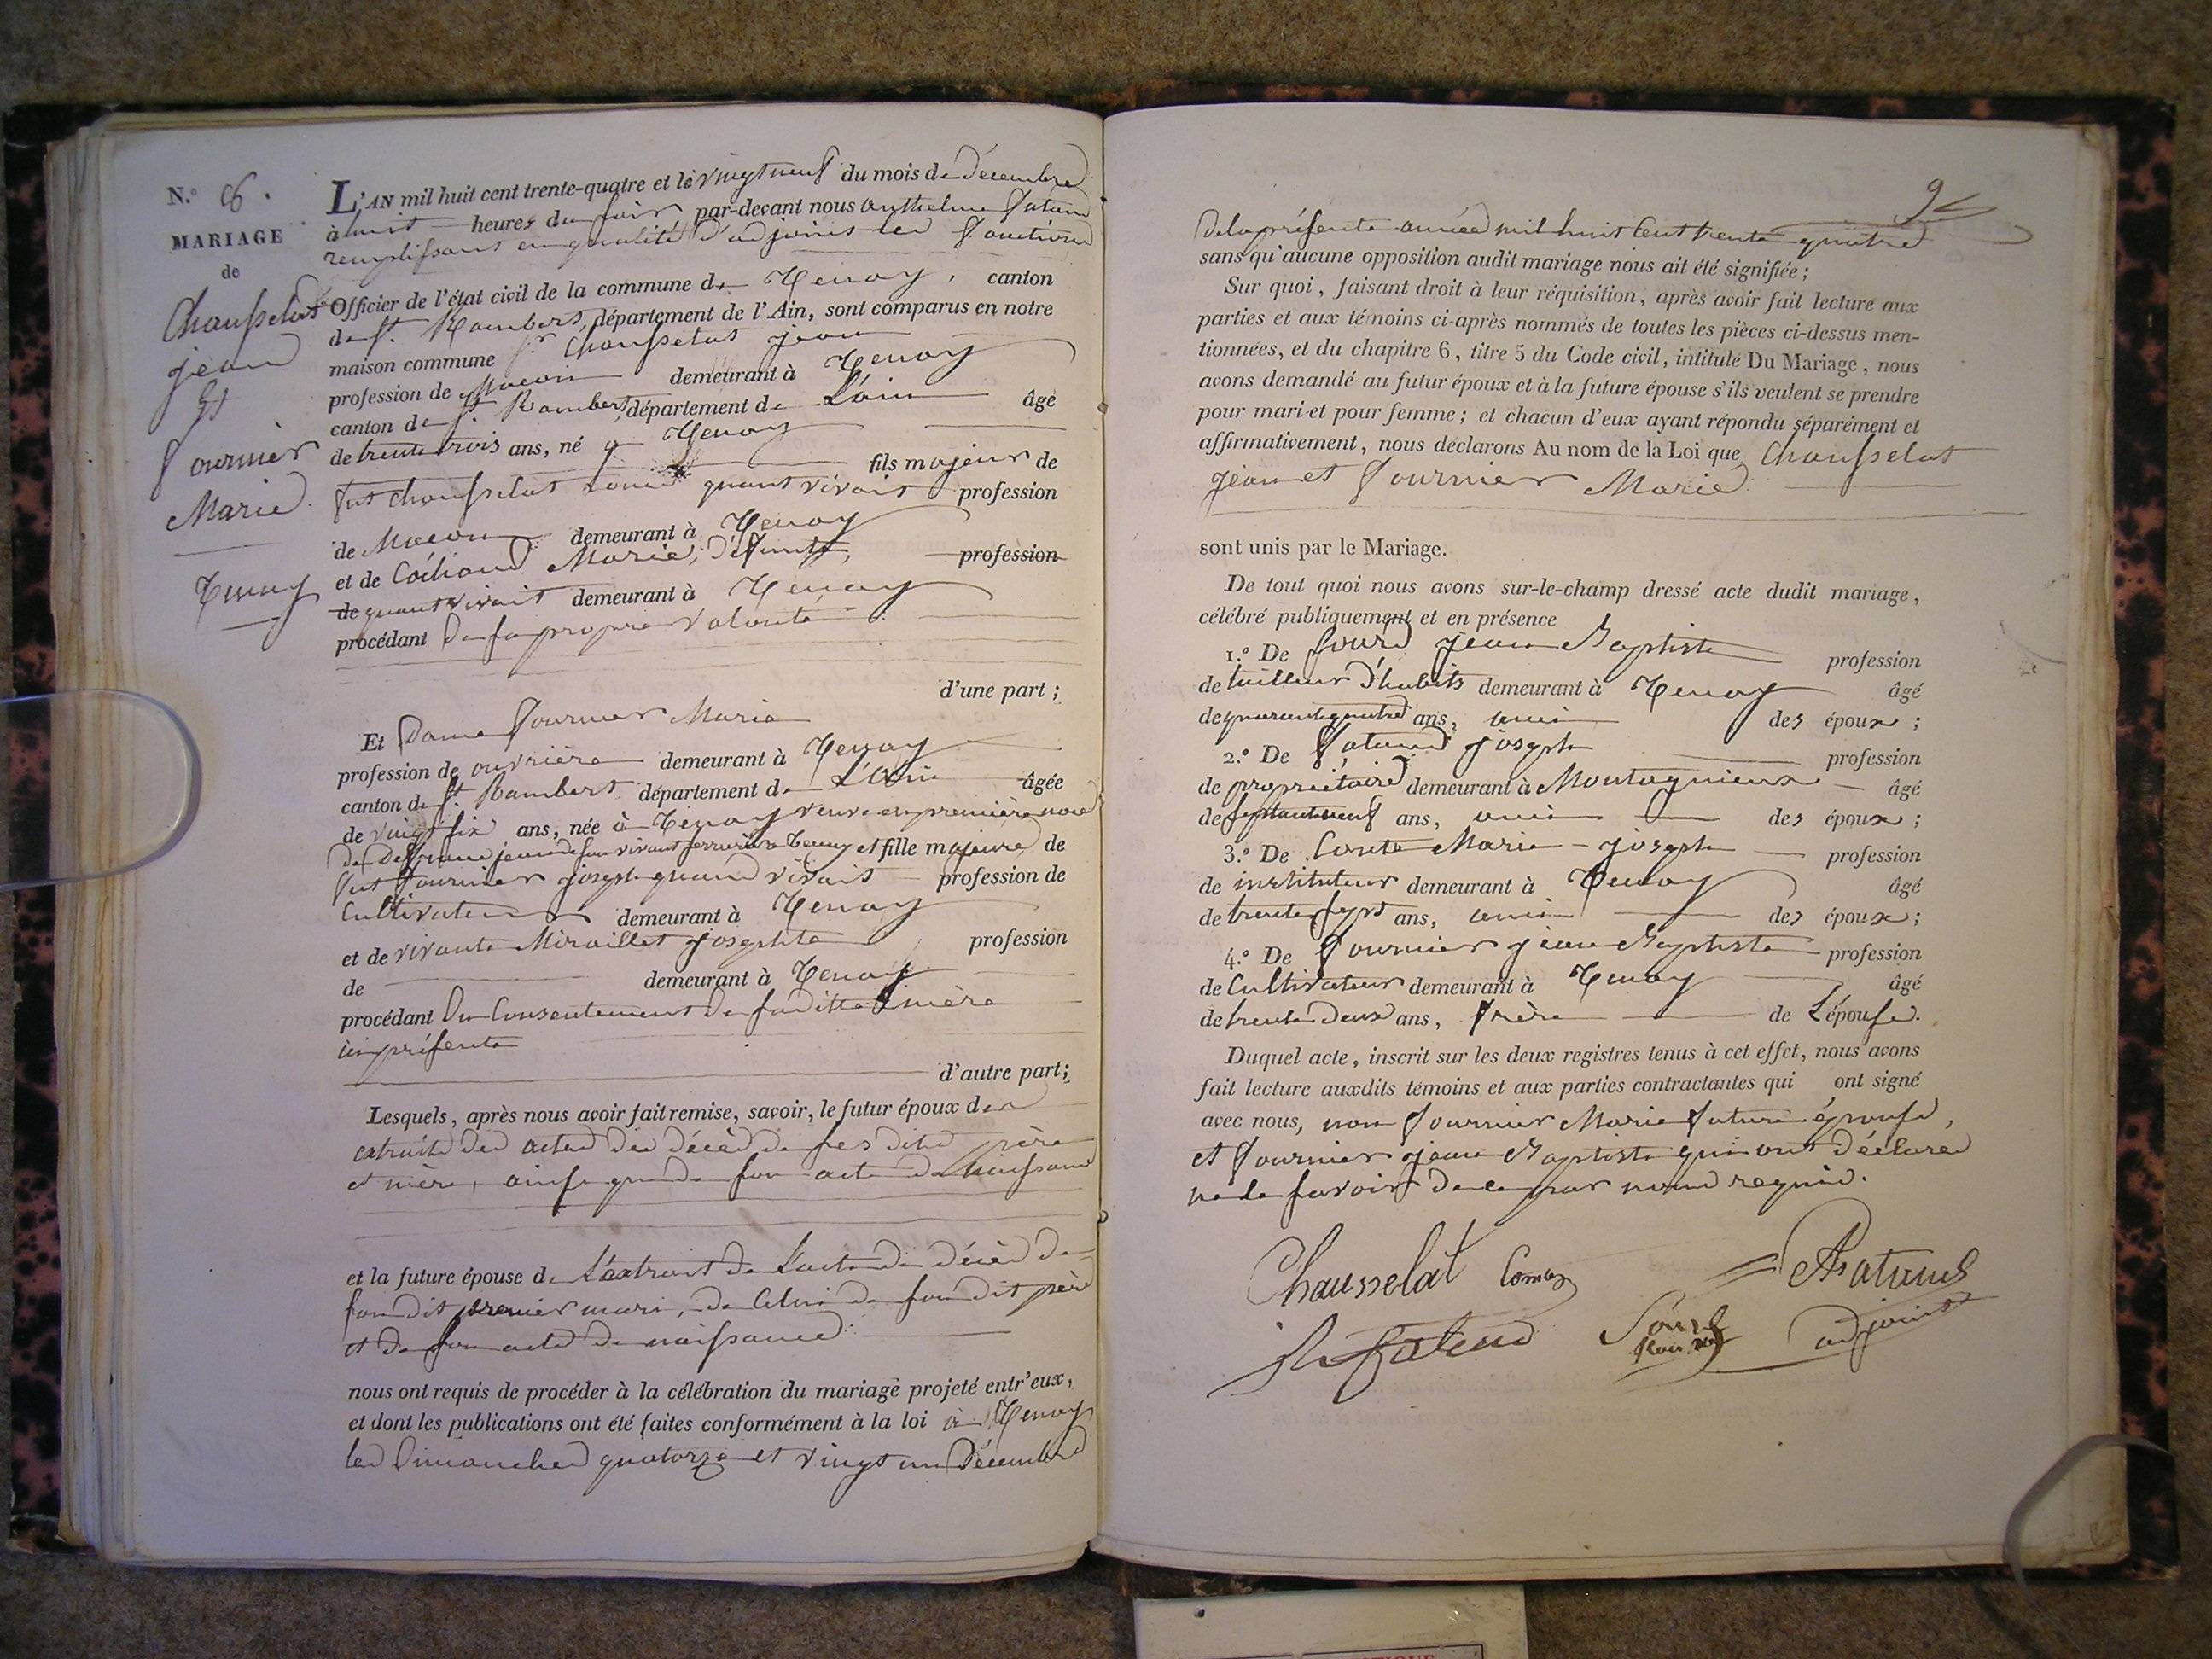 N.° 6.
MARIAGE
de
Chausselat
jean
Et
Fournier
Marie.
Tenay
L'AN mil huit cent trente-quatre et le vingt neuf du mois de Décembre
à huit heures du soir par-devant nous Anthelme
remplissant en qualité d'adjoint les fonctions
Officier de l'état civil de la commune de Tenay, canton
de St. Rambert, département de l'Ain, sont comparus en notre
maison commune Sr. Chausselat jean
profession de Maçon demeurant à Tenay
canton de St. Rambert, département de L'ain âgé
de trente trois ans, né à Tenay
fils majeur de
fut Chausselat quant vivait profession
de Maçon demeurant à Tenay
et de Marie, Défunte, profession
de quant vivait demeurant à Tenay
procédant De sa propre Volonté
d'une part ;
Et Dame Fournier Marie
profession de ouvrière demeurant à Tenay
canton de St. Rambert département de L'Ain âgée
de vingt six ans, née à Tenay veuve en première noce
de jean de son vivant à Tenay et fille majeure de
fut Fournier joseph quand vivait profession de
Cultivateur demeurant à Tenay
et de vivante Miraillet josephte profession
de demeurant à Tenay
procédant Du Consentement De sa ditte mère
ici présente
d'autre part;
Lesquels, après nous avoir fait remise, savoir, le futur époux des
extraits des actes des décès de ses dits père
et mère, ainsi que de son acte de Naissance
et la future épouse de L'extrait de L'acte de décès de
son dit premier mari, de Celui de son dit père
et de son acte de naissance
nous ont requis de procéder à la célébration du mariage projeté entr'eux,
et dont les publications ont été faites conformément à la loi à Tenay
les Dimanches quatorze et vingt un Décembre
9
De la présente année mil huit Cent trente quatre
sans qu'aucune opposition audit mariage nous ait été signifiée ;
Sur quoi, faisant droit à leur réquisition, après avoir fait lecture aux
parties et aux témoins ci-après nommés de toutes les pièces ci-dessus men-
tionnées, et du chapitre 6, titre 5 du Code civil, intitulé Du Mariage, nous
avons demandé au futur époux et à la future épouse s'ils veulent se prendre
pour mari et pour femme ; et chacun d'eux ayant répondu séparément et
affirmativement, nous déclarons Au nom de la Loi que Chausselat
Jean et Fournier Marie
sont unis par le Mariage.
De tout quoi nous avons sur-le-champ dressé acte dudit mariage,
célébré publiquement et en présence
1.° De Jean Baptiste profession
de tailleur d'habits demeurant à Tenay âgé
de quarante quatre ans, ami des époux ;
2.° De joseph profession
de propriétaire demeurant à Montagnieux âgé
de septante neuf ans, ami des époux ;
3.° De Marie-joseph profession
de instituteur demeurant à Tenay âgé
de trente sept ans, ami des époux ;
4.° De Fournier jean Baptiste profession
de Cultivateur demeurant à Tenay âgé
de trente Deux ans, frère de L'épouse.
Duquel acte, inscrit sur les deux registres tenus à cet effet, nous avons
fait lecture auxdits témoins et aux parties contractantes qui ont signé
avec nous, non Fournier Marie future épouse,
et Fournier jean Baptiste qui ont Déclaré
ne le savoir De ce par nous requis.
Chausselat
adjoint